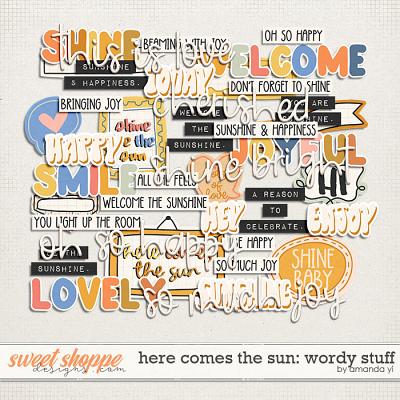 SHINE
BEAMING WITH JOY
OH SO HAPPY
this is love
WELCOME
SUNSHINE
& HAPPINESS.
TODAY
DON'T FORGET TO SHINE
BRINGING JOY
cherished
WELCOME
THE
SUNSHINE.
SUNSHINE & HAPPINESS
ARE
shine
the
sun
HAPPY
JOYFUL
shine bright
SMILE
ALL THE FEELS
HI
of love
WELCOME THE SUNSHINE
A REASON
TO
CELEBRATE.
HEY
ENJOY
YOU LIGHT UP THE ROOM
oh so happy
BE HAPPY
THE
SUNSHINE.
the sun
SO MUCH JOY
SHINE
BABY
LOVELY
SUNSHINE
so much joy
sweet shoppe
designs.com
here comes the sun: wordy stuff
by amanda yi